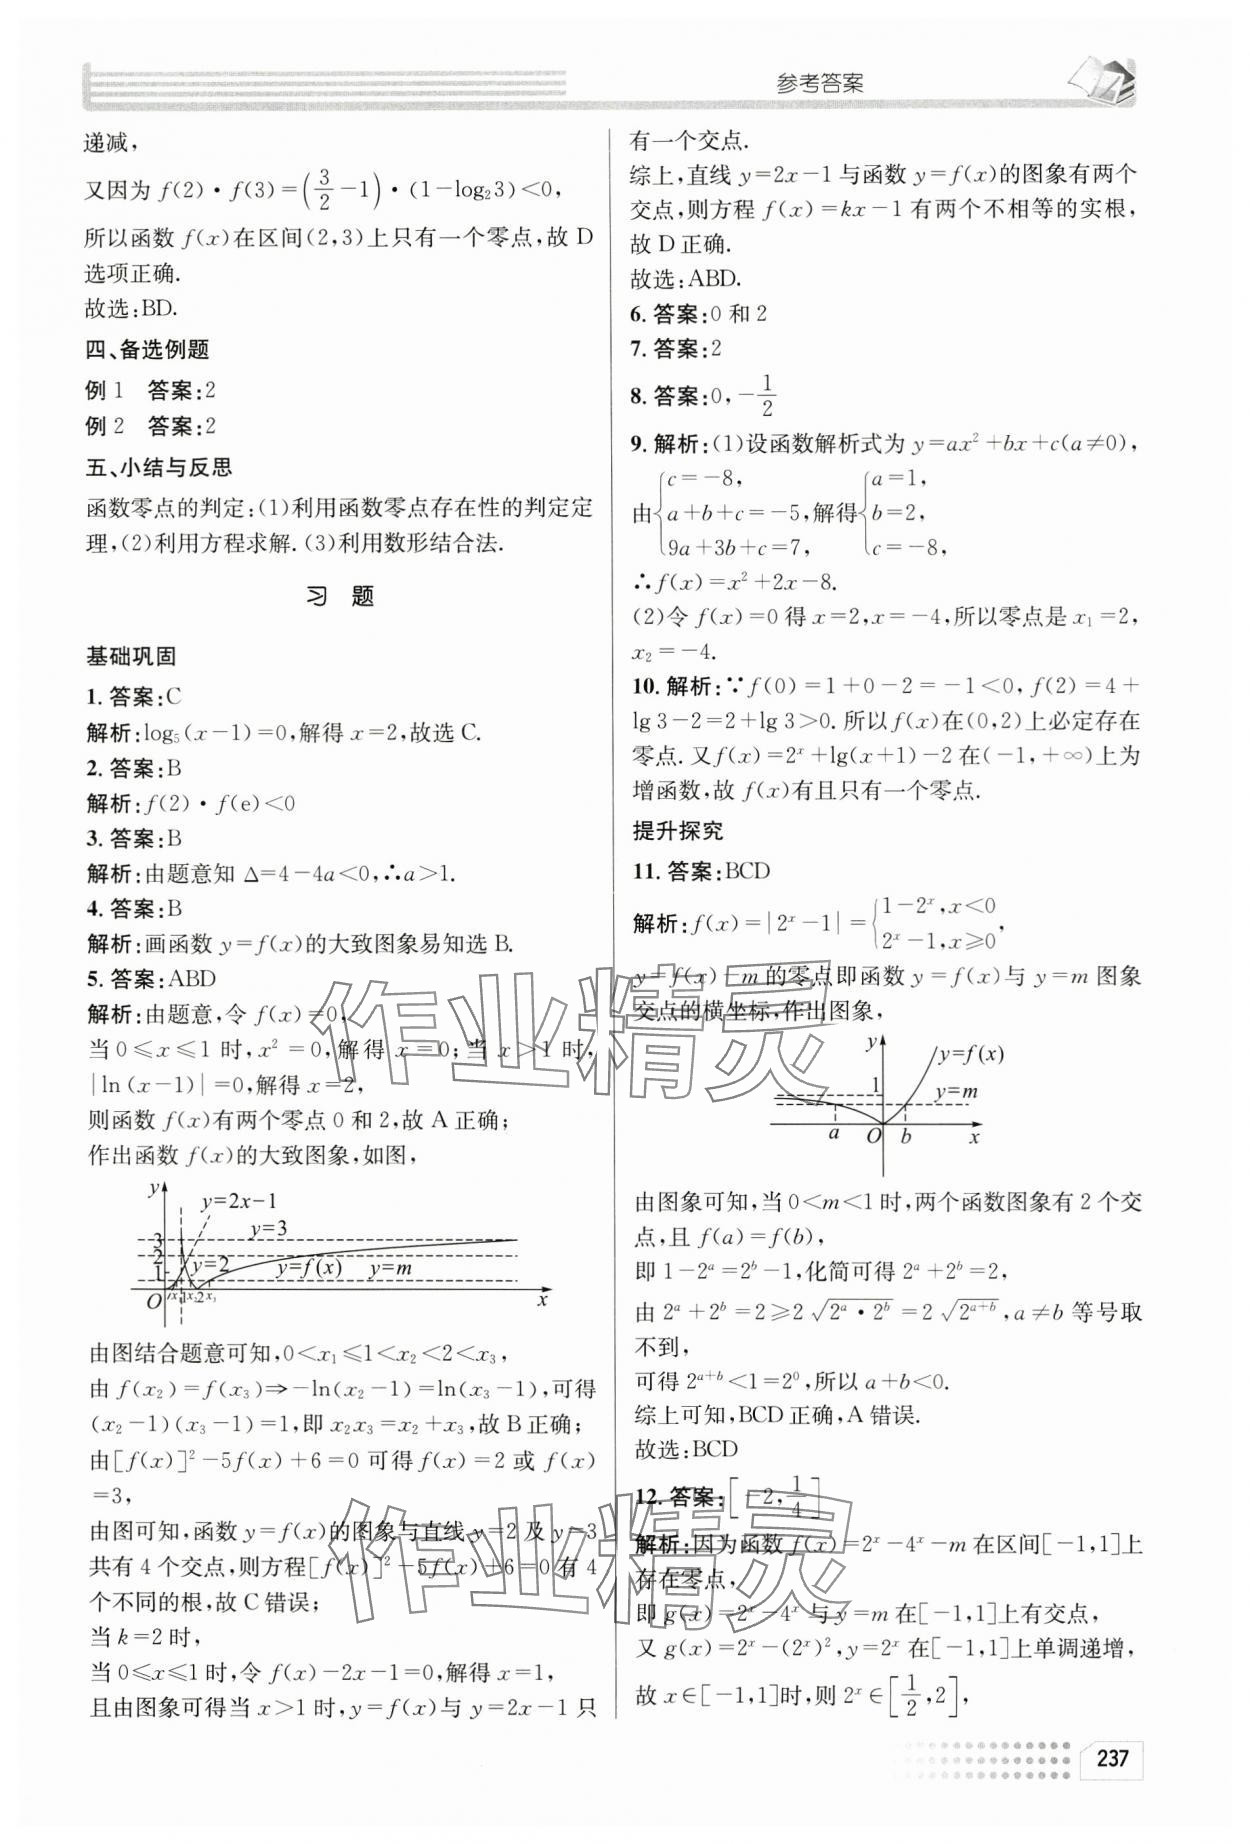 参考答案
递减，
又因为 f(2)·f(3)=(3/2-1)·(1-log₂3)<0，
所以函数 f(x)在区间(2,3)上只有一个零点，故 D
选项正确.
故选：BD.
四、备选例题
例 1　答案：2
例 2　答案：2
五、小结与反思
函数零点的判定：(1)利用函数零点存在性的判定定
理，(2)利用方程求解.(3)利用数形结合法.
习　题
基础巩固
1. 答案：C
解析：log₅(x-1)=0，解得 x=2，故选 C.
2. 答案：B
解析：f(2)·f(e)<0
3. 答案：B
解析：由题意知 Δ=4-4a<0，∴a>1.
4. 答案：B
解析：画函数 y=f(x)的大致图象易知选 B.
5. 答案：ABD
解析：由题意，令 f(x)=0，
当 0⩽x⩽1 时，x²=0，解得 x=0；当 x>1 时，
|ln(x-1)|=0，解得 x=2，
则函数 f(x)有两个零点 0 和 2，故 A 正确；
作出函数 f(x)的大致图象，如图，
y
y=2x-1
y=3
3
2
y=2
1
y=f(x)　y=m
O x₁ 1 x₂ 2 x₃ x
由图结合题意可知，0<x₁⩽1<x₂<2<x₃，
由 f(x₂)=f(x₃)⇒-ln(x₂-1)=ln(x₃-1)，可得
(x₂-1)(x₃-1)=1，即 x₂x₃=x₂+x₃，故 B 正确；
由[f(x)]²-5f(x)+6=0 可得 f(x)=2 或 f(x)
=3，
由图可知，函数 y=f(x)的图象与直线 y=2 及 y=3
共有 4 个交点，则方程[f(x)]²-5f(x)+6=0 有 4
个不同的根，故 C 错误；
当 k=2 时，
当 0⩽x⩽1 时，令 f(x)-2x-1=0，解得 x=1，
且由图象可得当 x>1 时，y=f(x)与 y=2x-1 只
有一个交点.
综上，直线 y=2x-1 与函数 y=f(x)的图象有两个
交点，则方程 f(x)=kx-1 有两个不相等的实根，
故 D 正确.
故选：ABD.
6. 答案：0 和 2
7. 答案：2
8. 答案：0，-1/2
9. 解析：(1)设函数解析式为 y=ax²+bx+c(a≠0)，
由{c=-8, a+b+c=-5, 9a+3b+c=7, 解得{a=1, b=2, c=-8,
∴f(x)=x²+2x-8.
(2)令 f(x)=0 得 x=2，x=-4，所以零点是 x₁=2，
x₂=-4.
10. 解析：∵f(0)=1+0-2=-1<0，f(2)=4+
lg 3-2=2+lg 3>0. 所以 f(x)在(0,2)上必定存在
零点. 又 f(x)=2ˣ+lg(x+1)-2 在(-1,+∞)上为
增函数，故 f(x)有且只有一个零点.
提升探究
11. 答案：BCD
解析：f(x)=|2ˣ-1|={1-2ˣ,x<0 2ˣ-1,x⩾0，
y=f(x)-m 的零点即函数 y=f(x)与 y=m 图象
交点的横坐标，作出图象，
y
y=f(x)
1
y=m
a O b x
由图象可知，当 0<m<1 时，两个函数图象有 2 个交
点，且 f(a)=f(b)，
即 1-2ᵃ=2ᵇ-1，化简可得 2ᵃ+2ᵇ=2，
由 2ᵃ+2ᵇ=2⩾2√(2ᵃ·2ᵇ)=2√(2ᵃ⁺ᵇ)，a≠b 等号取
不到，
可得 2ᵃ⁺ᵇ<1=2⁰，所以 a+b<0.
综上可知，BCD 正确，A 错误.
故选：BCD
12. 答案：[-2，1/4]
解析：因为函数 f(x)=2ˣ-4ˣ-m 在区间[-1,1]上
存在零点，
即 g(x)=2ˣ-4ˣ 与 y=m 在[-1,1]上有交点，
又 g(x)=2ˣ-(2ˣ)²，y=2ˣ 在[-1,1]上单调递增，
故 x∈[-1,1]时，则 2ˣ∈[1/2，2]，
作业精灵
作业精灵
237